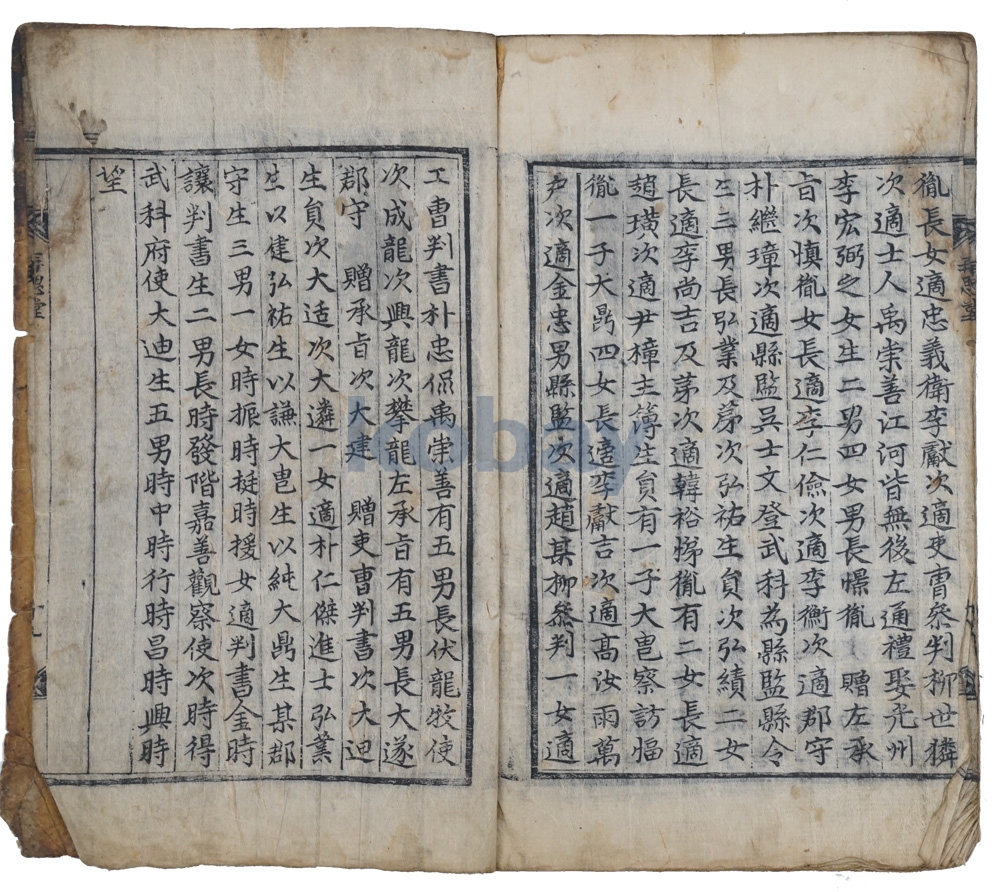 胤長女適忠義衛李巘次適吏曹參判柳世獜
次適士人禹崇善江河皆無後左通禮娶光州
李宏弼之女生二男四女男長憬胤 贈左承
旨次愼胤女長適李仁儉次適李衡次適郡守
朴繼璋次適縣監吳士文登武科為縣監縣令
生三男長弘業及第次弘祐生貟次弘績二女
長適李尚吉及苐次適韓裕悌胤有二女長適
趙璜次適尹橦主簿生貟有一子大鬯察訪愊
胤一子大鼎四女長適李獻吉次適高汝雨萬
戶次適金忠男縣監次適趙某柳參判一女適
工曹判書朴忠侃禹崇善有五男長伏龍牧使
次成龍次興龍次攀龍左承旨有五男長大遂
郡守 贈承旨次大建 贈吏曹判書次大迪
生貟次大适次大遴一女適朴仁傑進士弘業
生以健弘祐生以謙大鬯生以純大鼎生某郡
守生三男一女時振時挺時援女適判書金時
讓判書生二男長時發階嘉善觀察使次時得
武科府使大迪生五男時中時行時昌時興時
望
kobay